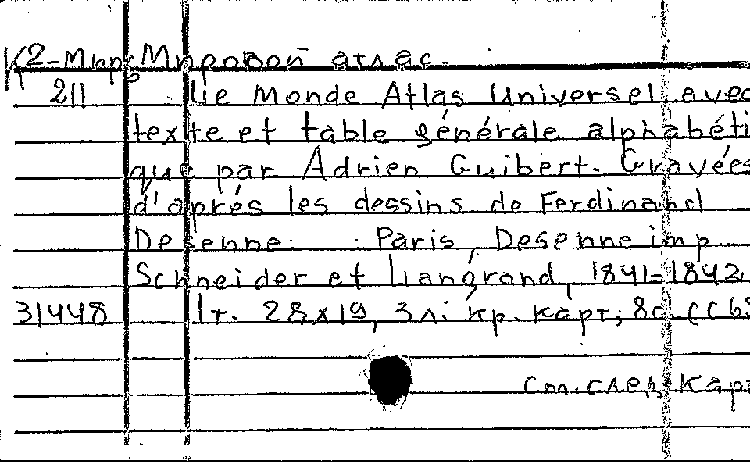 К2-Мир Мировой атлас.
211 Le Monde Atlas Universel avec
texte et table générale alphabéti
que par Adrien Guibert. Gravées
d'après les dessins de Ferdinand
Desenne. Paris, Desenne imp
Schneider et Langrand, 1841-1842
31448 1т. 28x19, 3 л. кр. карт,
См. след. карт